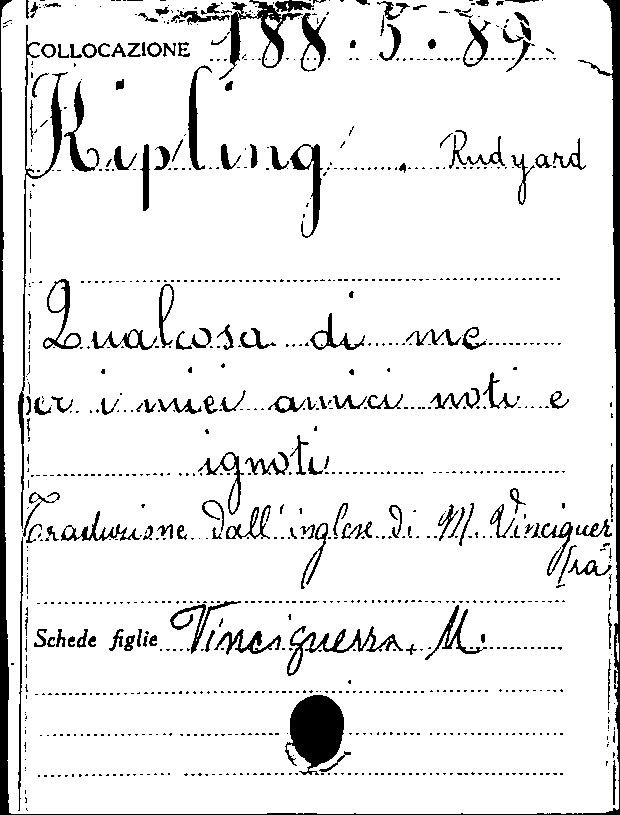 COLLOCAZIONE 188.5.89
Kipling . Rudyard
Qualcosa di me
per i miei amici noti e
ignoti
Traduzione dall'inglese di M. Vinciguer=
[ra
Schede figlie Vinciguerra, M.